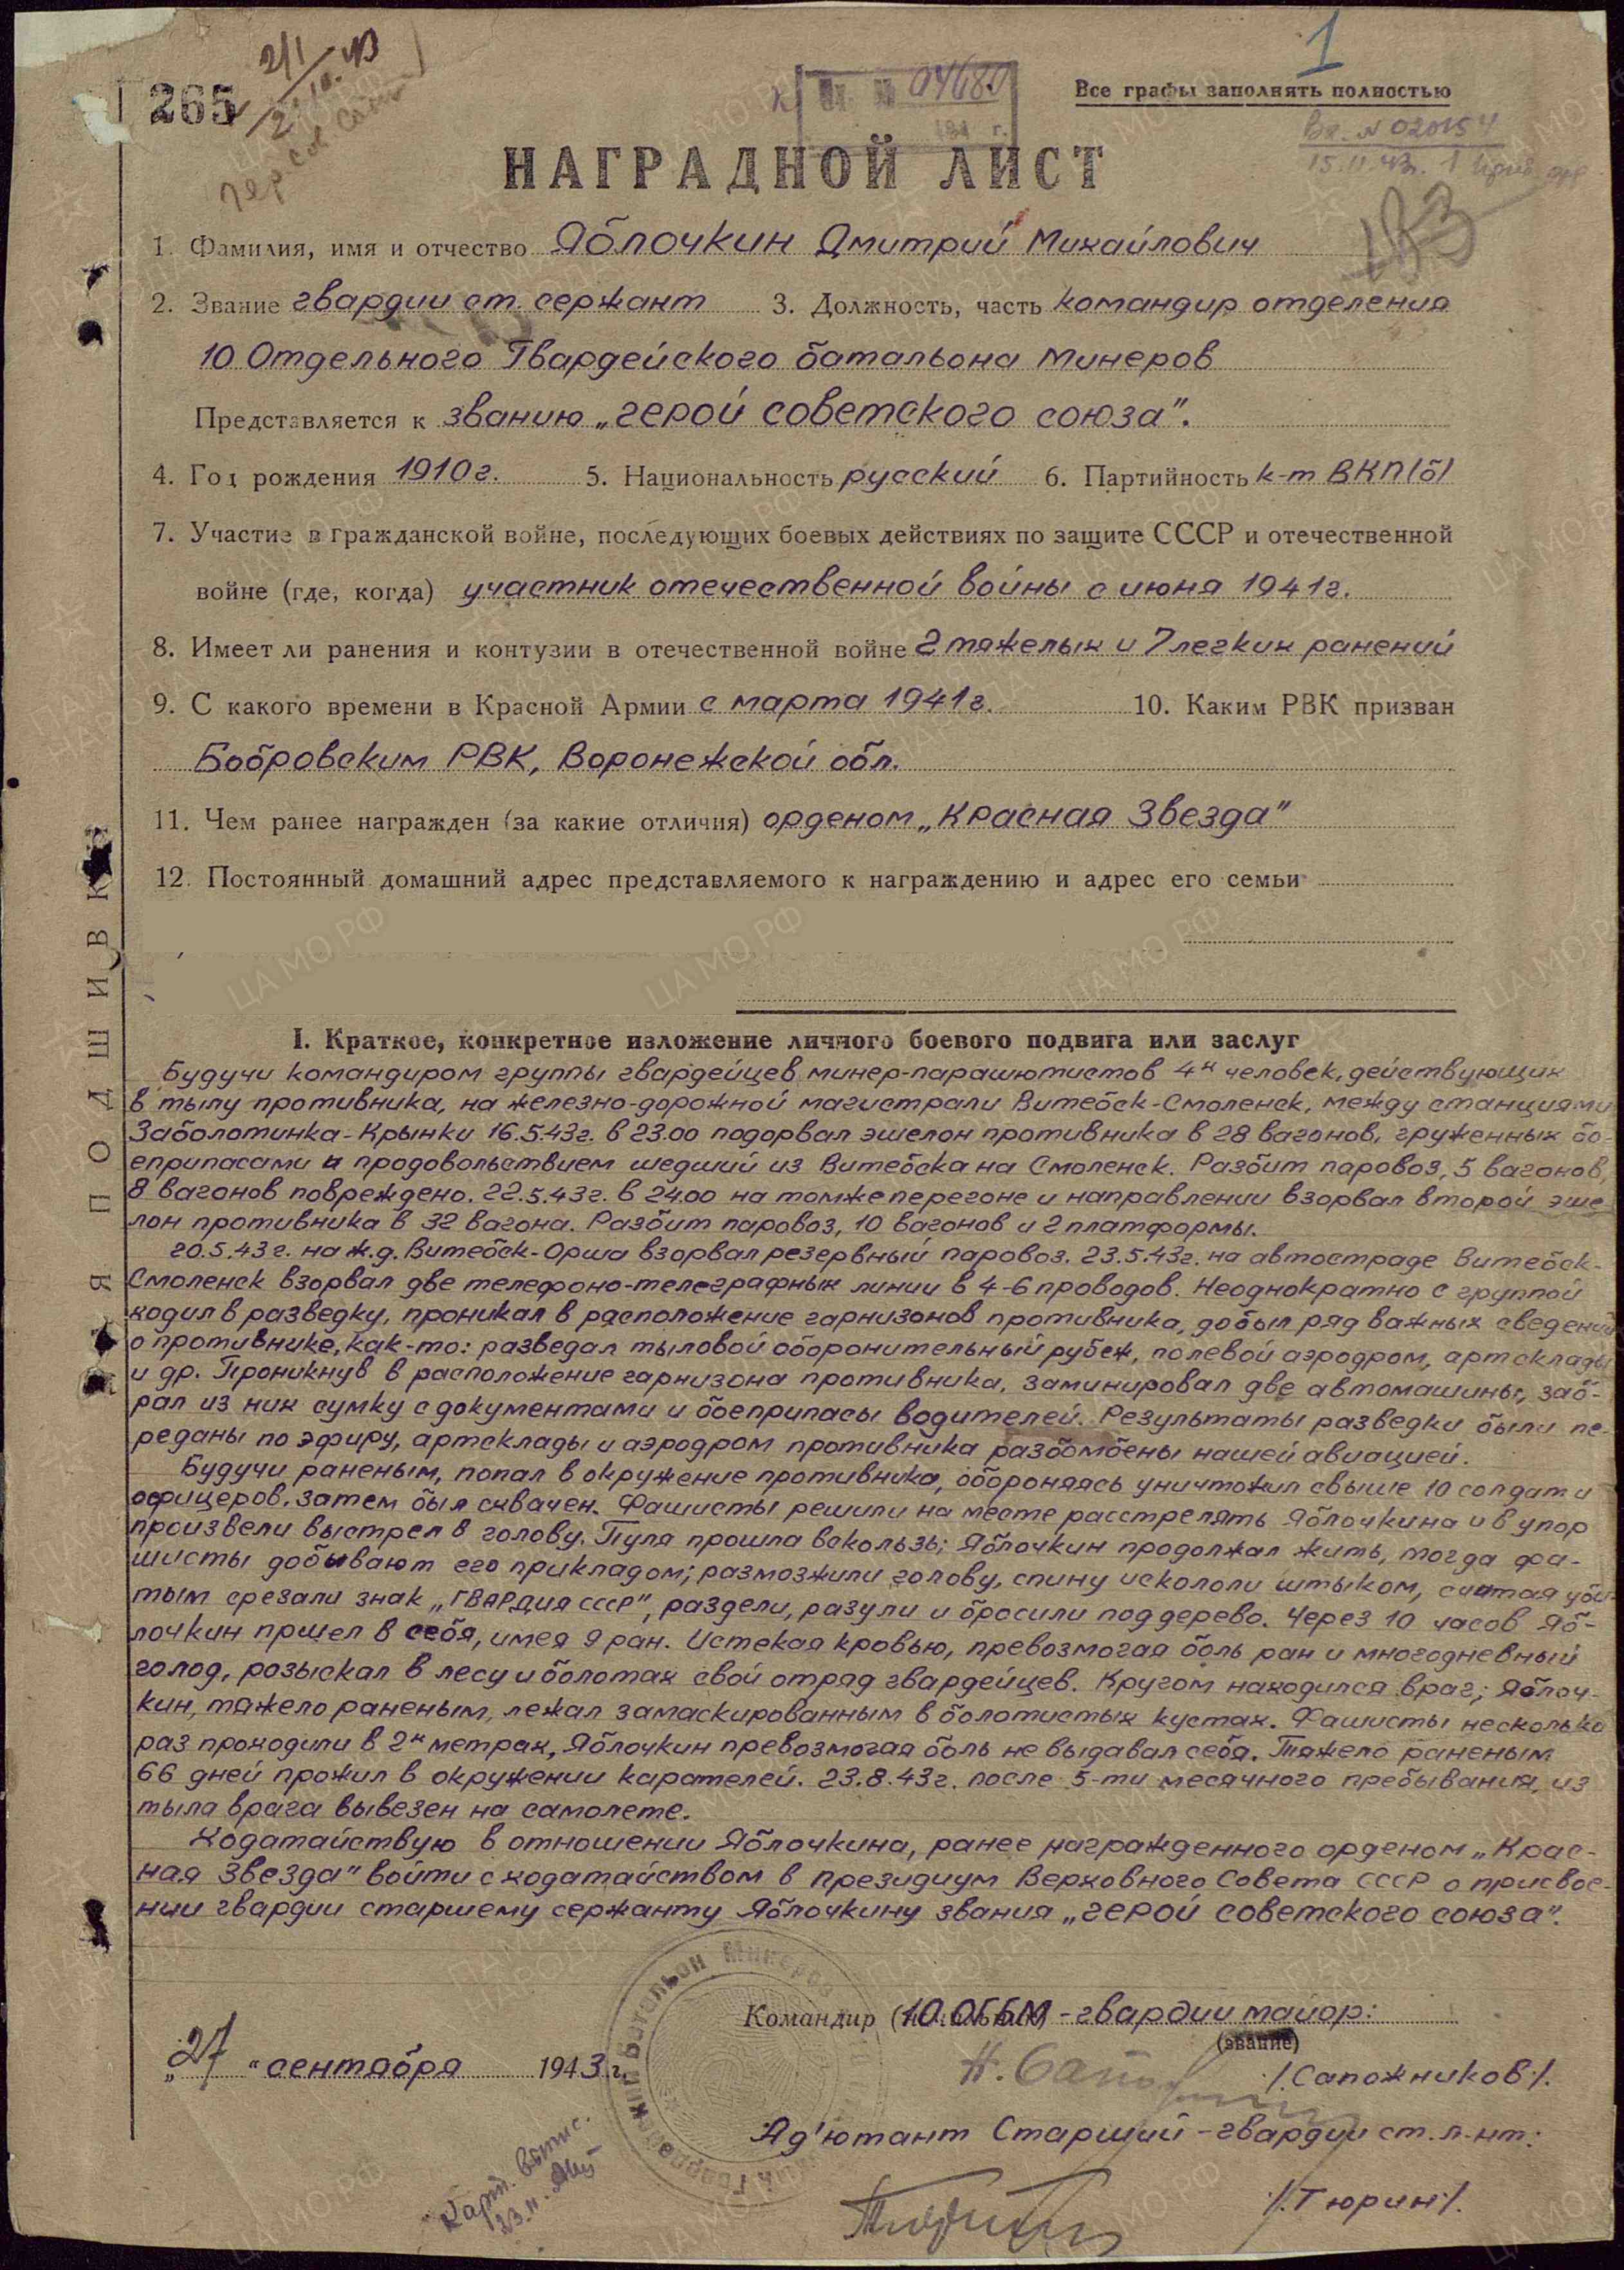 1
265
2/1
04680
Все графы заполнять полностью
Вх. № 020154
15.11.43г.
НАГРАДНОЙ ЛИСТ
183
1. Фамилия, имя и отчество Яблочкин Дмитрий Михайлович
2. Звание гвардии ст. сержант 3. Должность, часть командир отделения
10 Отдельного Гвардейского батальона минеров
Представляется к званию „герой советского союза".
4. Год рождения 1910г. 5. Национальность русский 6. Партийность к-т ВКП(б)
7. Участие в гражданской войне, последующих боевых действиях по защите СССР и отечественной
войне (где, когда) участник отечественной войны с июня 1941г.
8. Имеет ли ранения и контузии в отечественной войне 2 тяжелых и 7 легких ранений
9. С какого времени в Красной Армии с марта 1941г. 10. Каким РВК призван
Бобровским РВК, Воронежской обл.
11. Чем ранее награжден (за какие отличия) орденом „Красная Звезда"
12. Постоянный домашний адрес представляемого к награждению и адрес его семьи
ДЛЯ ПОДШИВКИ
I. Краткое, конкретное изложение личного боевого подвига или заслуг
Будучи командиром группы гвардейцев минер-парашютистов 4х человек, действующих
в тылу противника, на железно-дорожной магистрали Витебск-Смоленск, между станциями
Заболотинка-Крынки 16.5.43г. в 23.00 подорвал эшелон противника в 28 вагонов, груженных бо-
еприпасами и продовольствием шедший из Витебска на Смоленск. Разбит паровоз, 5 вагонов,
8 вагонов повреждено. 22.5.43г. в 24.00 на томже перегоне и направлении взорвал второй эше-
лон противника в 32 вагона. Разбит паровоз, 10 вагонов и 2 платформы.
20.5.43г. на ж.д. Витебск-Орша взорвал резервный паровоз. 23.5.43г. на автостраде Витебск-
Смоленск взорвал две телефоно-телеграфных линии в 4-6 проводов. Неоднократно с группой
ходил в разведку, проникал в расположение гарнизонов противника, добыл ряд важных сведений
о противнике, как-то: разведал тыловой оборонительный рубеж, полевой аэродром, артсклады
и др. Проникнув в расположение гарнизона противника, заминировал две автомашины, заб-
рал из них сумку с документами и боеприпасы водителей. Результаты разведки были пе-
реданы по эфиру, артсклады и аэродром противника разбомбены нашей авиацией.
Будучи раненым, попал в окружение противника, обороняясь уничтожил свыше 10 солдат и
офицеров, затем был схвачен. Фашисты решили на месте расстрелять Яблочкина и в упор
произвели выстрел в голову. Пуля прошла вскользь; Яблочкин продолжал жить, тогда фа-
шисты добывают его прикладом; размозжили голову, спину искололи штыком, считая уби-
тым срезали знак „ГВАРДИЯ СССР", раздели, разули и бросили под дерево. Через 10 часов Яб-
лочкин пршел в себя, имея 9 ран. Истекая кровью, превозмогая боль ран и многодневный
голод, розыскал в лесу и болотах свой отряд гвардейцев. Кругом находился враг; Яблоч-
кин, тяжело раненым, лежал замаскированным в болотистых кустах. Фашисты несколько
раз проходили в 2х метрах, Яблочкин превозмогая боль не выдавал себя. Тяжело раненым
66 дней прожил в окружении карателей. 23.8.43г. после 5-ти месячного пребывания, из
тыла врага вывезен на самолете.
Ходатайствую в отношении Яблочкина, ранее награжденного орденом „Крас-
ная Звезда" войти с ходатайством в президиум Верховного Совета СССР о присвое-
нии гвардии старшему сержанту Яблочкину звания „герой советского союза".
Командир 10 ОГБМ - гвардии майор:
(звание)
„27" сентября 1943г.
/.Сапожников./.
Ад'ютант Старший - гвардии ст. л-нт:
/.Тюрин./.
Батальон Минеров
ЦА МО РФ